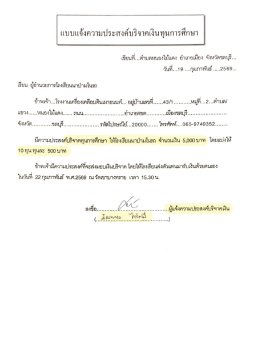 แบบแจ้งความประสงค์บริจาคเงินทุนการศึกษา
เขียนที่...ตำบลหนองไม้แดง อำเภอเมือง จังหวัดชลบุรี...
วันที่...19 ....กุมภาพันธ์ .....2569...
เรียน ผู้อำนวยการโรงเรียน
ข้าพเจ้า...โรงงาน อยู่บ้านเลขที่......43/1.........หมู่ที่...2....ตำบล/
แขวง......หนองไม้แดง...... ถนน.................อำเภอ/เขต............เมืองชลบุรี............
จังหวัด............ชลบุรี...............รหัสไปรษณีย์...20000........ โทรศัพท์...063-9749352......
มีความประสงค์บริจาคทุนการศึกษา ให้โรงเรียน จำนวนเงิน 5,000 บาท โดยแบ่งให้
10 ทุน ทุนละ 500 บาท
ข้าพเจ้ามีความประสงค์ที่จะส่งมอบเงินบริจาค โดยให้โรงเรียนส่งตัวแทนมารับเงินด้วยตนเอง
ในวันที่ 22 กุมภาพันธ์ พ.ศ.2569 ณ เวลา 15.30 น.
ลงชื่อ ผู้แจ้งความประสงค์บริจาคเงิน